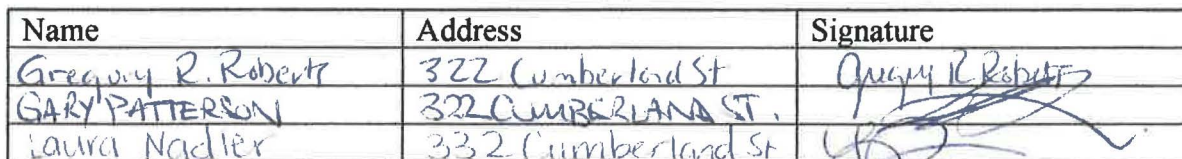 Name Address Signature
Gregory R. Roberts 322 Cumberland St Gregory R Roberts
GARY PATTERSON 322 CUMBERLAND ST.
Laura Nadler 332 Cumberland St